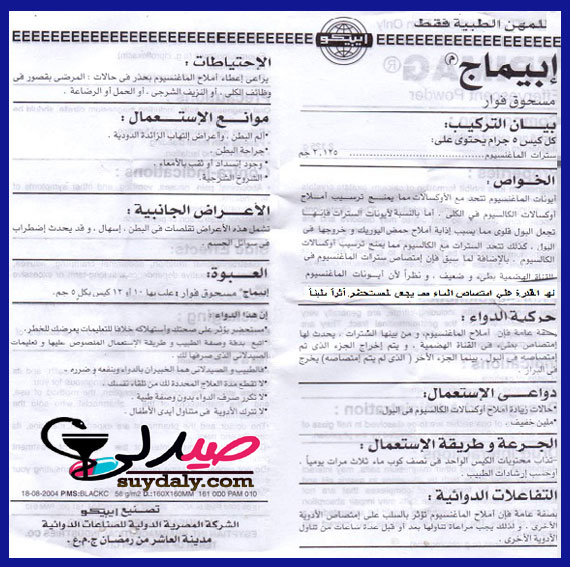 للمهن الطبية فقط
ايبيكو
إبيماج (م)
مسحوق فوار
بيان التركيب:
كل كيس ٥ جرام يحتوى على:
سترات الماغنسيوم ٢,١٢٥ جم
الخواص:
أيونات الماغنسيوم تتحد مع الأوكسالات مما يمنع ترسيب أملاح
أوكسالات الكالسيوم فى الكلى . أما بالنسبة لأيونات السترات فإنها
تجعل البول قلوى مما يسبب إذابة أملاح حمض البوريك و خروجها فى
البول . كذلك تتحد السترات مع الكالسيوم مما يمنع ترسيب أوكسالات
الكالسيوم . بالإضافة لما سبق فإن إمتصاص سترات الماغنسيوم فى
القناة الهضمية بطىء و ضعيف . و نظراً لأن أيونات الماغنسيوم
لها القدرة على امتصاص الماء مما يجعل للمستحضر أثراً مليناً
حركية الدواء:
بصفة عامة فإن أملاح الماغنسيوم، و من بينها السترات ، يحدث لها
إمتصاص بطىء فى القناة الهضمية . و يتم إخراج الجزء الذى تم
إمتصاصه فى البول. بينما الجزء الآخر ( الذى لم يتم إمتصاصه) يخرج
فى البراز.
دواعى الإستعمال:
*حالات زيادة أملاح أوكسالات الكالسيوم فى البول.
*ملين خفيف.
الجرعة و طريقة الإستعمال:
تذاب محتويات الكيس الواحد فى نصف كوب ماء ثلاث مرات يومياً،
أوحسب إرشادات الطبيب .
التفاعلات الدوائية:
بصفة عامة فإن أملاح الماغنسيوم تؤثر بالسلب على إمتصاص الأدوية
الأخرى . و لذلك يجب مراعاة تناولها بعد أو قبل عدة ساعات من تناول
الأدوية الأخرى.
الإحتياطات:
يراعى إعطاء أملاح الماغنسيوم بحذر فى حالات : المرضى بقصور فى
وظائف الكلى ، أو النزيف الشرجى ، أو الحمل أو الرضاعة .
موانع الإستعمال:
*ألم البطن، وأعراض إلتهاب الزائدة الدودية .
*جراحة البطن.
*وجود إنسداد أو ثقب بالأمعاء.
*الشروخ الشرجية.
الأعراض الجانبية:
تشمل هذه الأعراض تقلصات فى البطن ، إسهال، و قد يحدث إضطراب
فى سوائل الجسم
العبوة:
إبيماج® مسحوق فوار : علب بها ١٠ أو ١٢ كيس بكل ٥ جم.
إن هذا الدواء:
*مستحضر يؤثر على صحتك وأستهلاكه خلافا للتعليمات يعرضك للخطر.
*اتبع بدقة وصفة الطبيب و طريقة الإستعمال المنصوص عليها و تعليمات
الصيدلانى الذى صرفها لك.
*فالطبيب و الصيدلانى هما الخبيران بالدواء وبنفعه و ضرره .
*لا تقطع مدة العلاج المحددة لك من تلقاء نفسك .
*لا تكرر صرف الدواء بدون وصفة طبية .
*لا تترك الأدوية فى متناول أيدى الأطفال .
صيدلى
suydaly.com
18-08-2004 PMS:BLACKC 56 g/m2 D.:160X160MM 161 000 PAM 010
تصنيع إيبيكو
الشركة المصرية الدولية للصناعات الدوائية
مدينة العاشر من رمضان ج.م.ع.